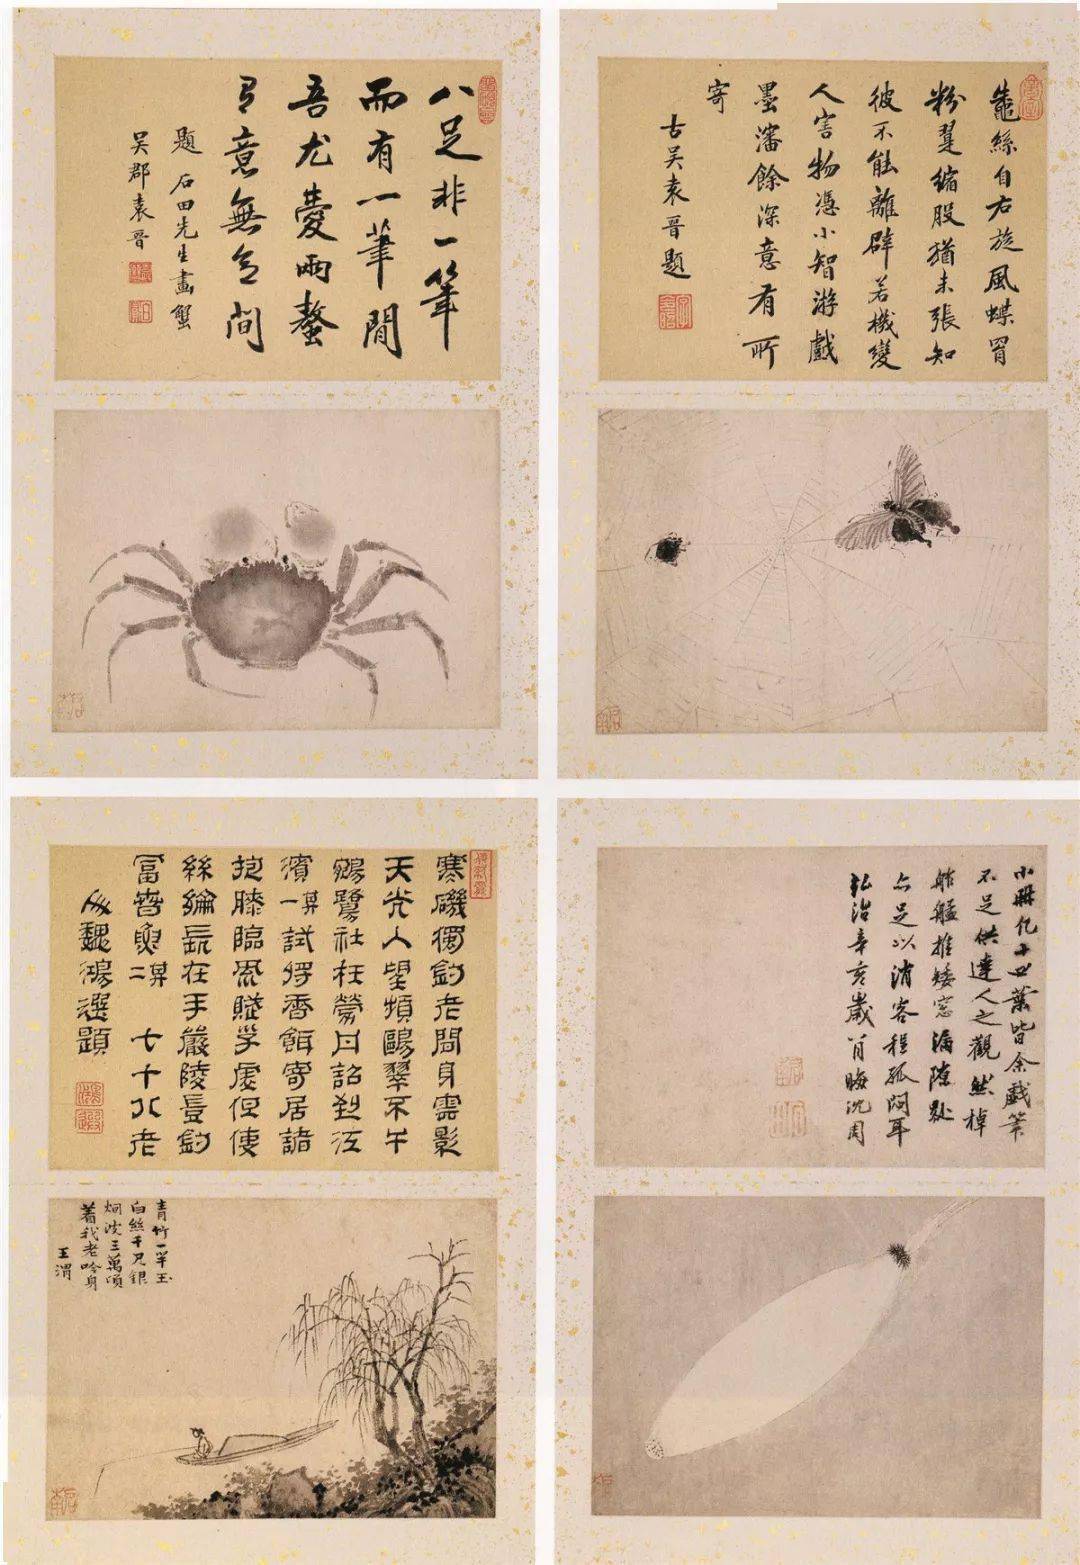 八足非一筆
而有一筆間
吾尤愛兩螯
有意無意間
題 石田先生畫蟹
吳郡袁晉
絲自右旋風蝶罥
粉翼縮股猶未張知
彼不能離辟若機變
人害物憑小智游戲
墨瀋餘深意有所
寄
古吳袁晉題
寒磯獨釣老閒身雲影
天光入望頻鷗不
鷺社枉勞丹詔到江
濱 其一 試將香餌寄居諸
抱膝臨風賦子虛但使
絲綸長在手嚴陵豈釣
富春魚 其二 七十八老
人魏鴻選題
青竹一竿玉
白絲千尺銀
烟波三萬頃
着我老吟身
王渭
小冊凡十四葉皆余戲筆
不足供達人之觀然棹
舴艋推矮窓漏隙
亦足以消客程孤悶耳
弘治辛亥歲晦沈周